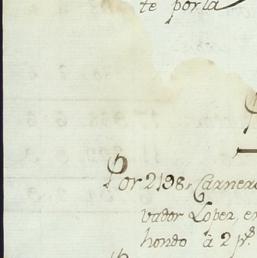 te por la
Por 2198 Carnero
vador Lopez en
hondo á 2 ps.